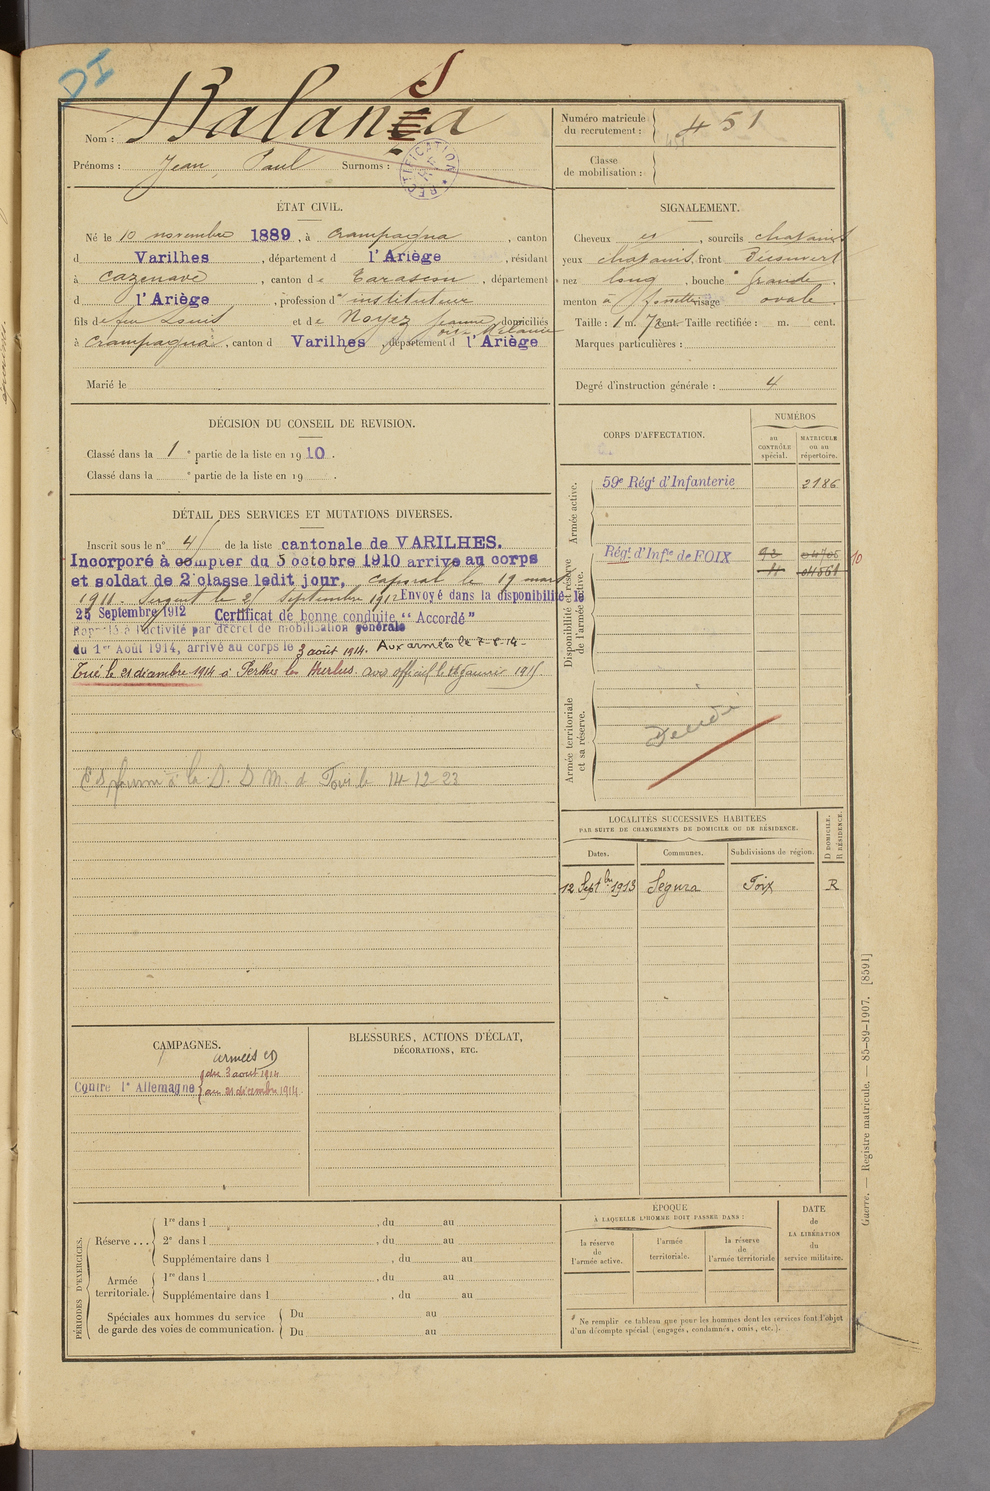 DI
S
Nom : Balança
Prénoms : Jean, Paul Surnoms :
RECTIFICATION
Numéro matricule du recrutement : 451
Classe de mobilisation :
ÉTAT CIVIL.
Né le 10 novembre 1889, à Crampagna, canton
d Varilhes, département d l'Ariège, résidant
à Cazenave, canton de Tarascon, département
d l'Ariège, profession d' instituteur
fils de feu Louis et de Noyez Jeanne domiciliés
à Crampagna, canton d Varilhes, département d l'Ariège
Marié le
SIGNALEMENT.
Cheveux et, sourcils chatains
yeux chatains, front Découvert
nez long, bouche grande
menton à fossette visage ovale.
Taille : 1 m. 73 cent. Taille rectifiée : m. cent.
Marques particulières :
Degré d'instruction générale : 4
DÉCISION DU CONSEIL DE REVISION.
Classé dans la 1e partie de la liste en 1910.
Classé dans la e partie de la liste en 19 .
CORPS D'AFFECTATION.
NUMÉROS
au CONTRÔLE spécial.
MATRICULE ou au répertoire.
Armée active.
59e Régt d'Infanterie 2186
Disponibilité et réserve de l'armée active.
Régt d'Infie de FOIX
10
Armée territoriale et sa réserve.
Décédé
DÉTAIL DES SERVICES ET MUTATIONS DIVERSES.
Inscrit sous le n° 4 de la liste cantonale de VARILHES.
Incorporé à compter du 5 octobre 1910 arrivé au corps
et soldat de 2e classe ledit jour, caporal le 19 mars
1911. Sergent le 25 Septembre 1912 Envoyé dans la disponibilité le
25 Septembre 1912 Certificat de bonne conduite "Accordé"
Rappelé à l'activité par décret de mobilisation générale
du 1er Août 1914, arrivé au corps le 3 août 1914. Aux armées le 7-8-14-
Tué le 21 décembre 1914 à Perthes les Hurlus. avis officiel le janvier 1915.
à la D. S. M. d Foix le 14-12-23
LOCALITÉS SUCCESSIVES HABITÉES
PAR SUITE DE CHANGEMENTS DE DOMICILE OU DE RÉSIDENCE.
Dates. Communes. Subdivisions de région. D DOMICILE. R RÉSIDENCE.
12 Septbre 1913 Segura Foix R
CAMPAGNES.
armées
Contre l'Allemagne du 3 août 1914
au 21 décembre 1914
BLESSURES, ACTIONS D'ÉCLAT,
DÉCORATIONS, ETC.
PÉRIODES D'EXERCICES.
Réserve ...
1re dans l , du au
2e dans l , du au
Supplémentaire dans l , du au
Armée territoriale.
1re dans l , du au
Supplémentaire dans l , du au
Spéciales aux hommes du service de garde des voies de communication.
Du au
Du au
ÉPOQUE
À LAQUELLE L'HOMME DOIT PASSER DANS :
la réserve de l'armée active.
l'armée territoriale.
la réserve de l'armée territoriale
DATE de LA LIBÉRATION du service militaire.
* Ne remplir ce tableau que pour les hommes dont les services font l'objet
d'un décompte spécial (engagés, condamnés, omis, etc.).
Guerre. — Registre matricule. — 85-89-1907. [8591]